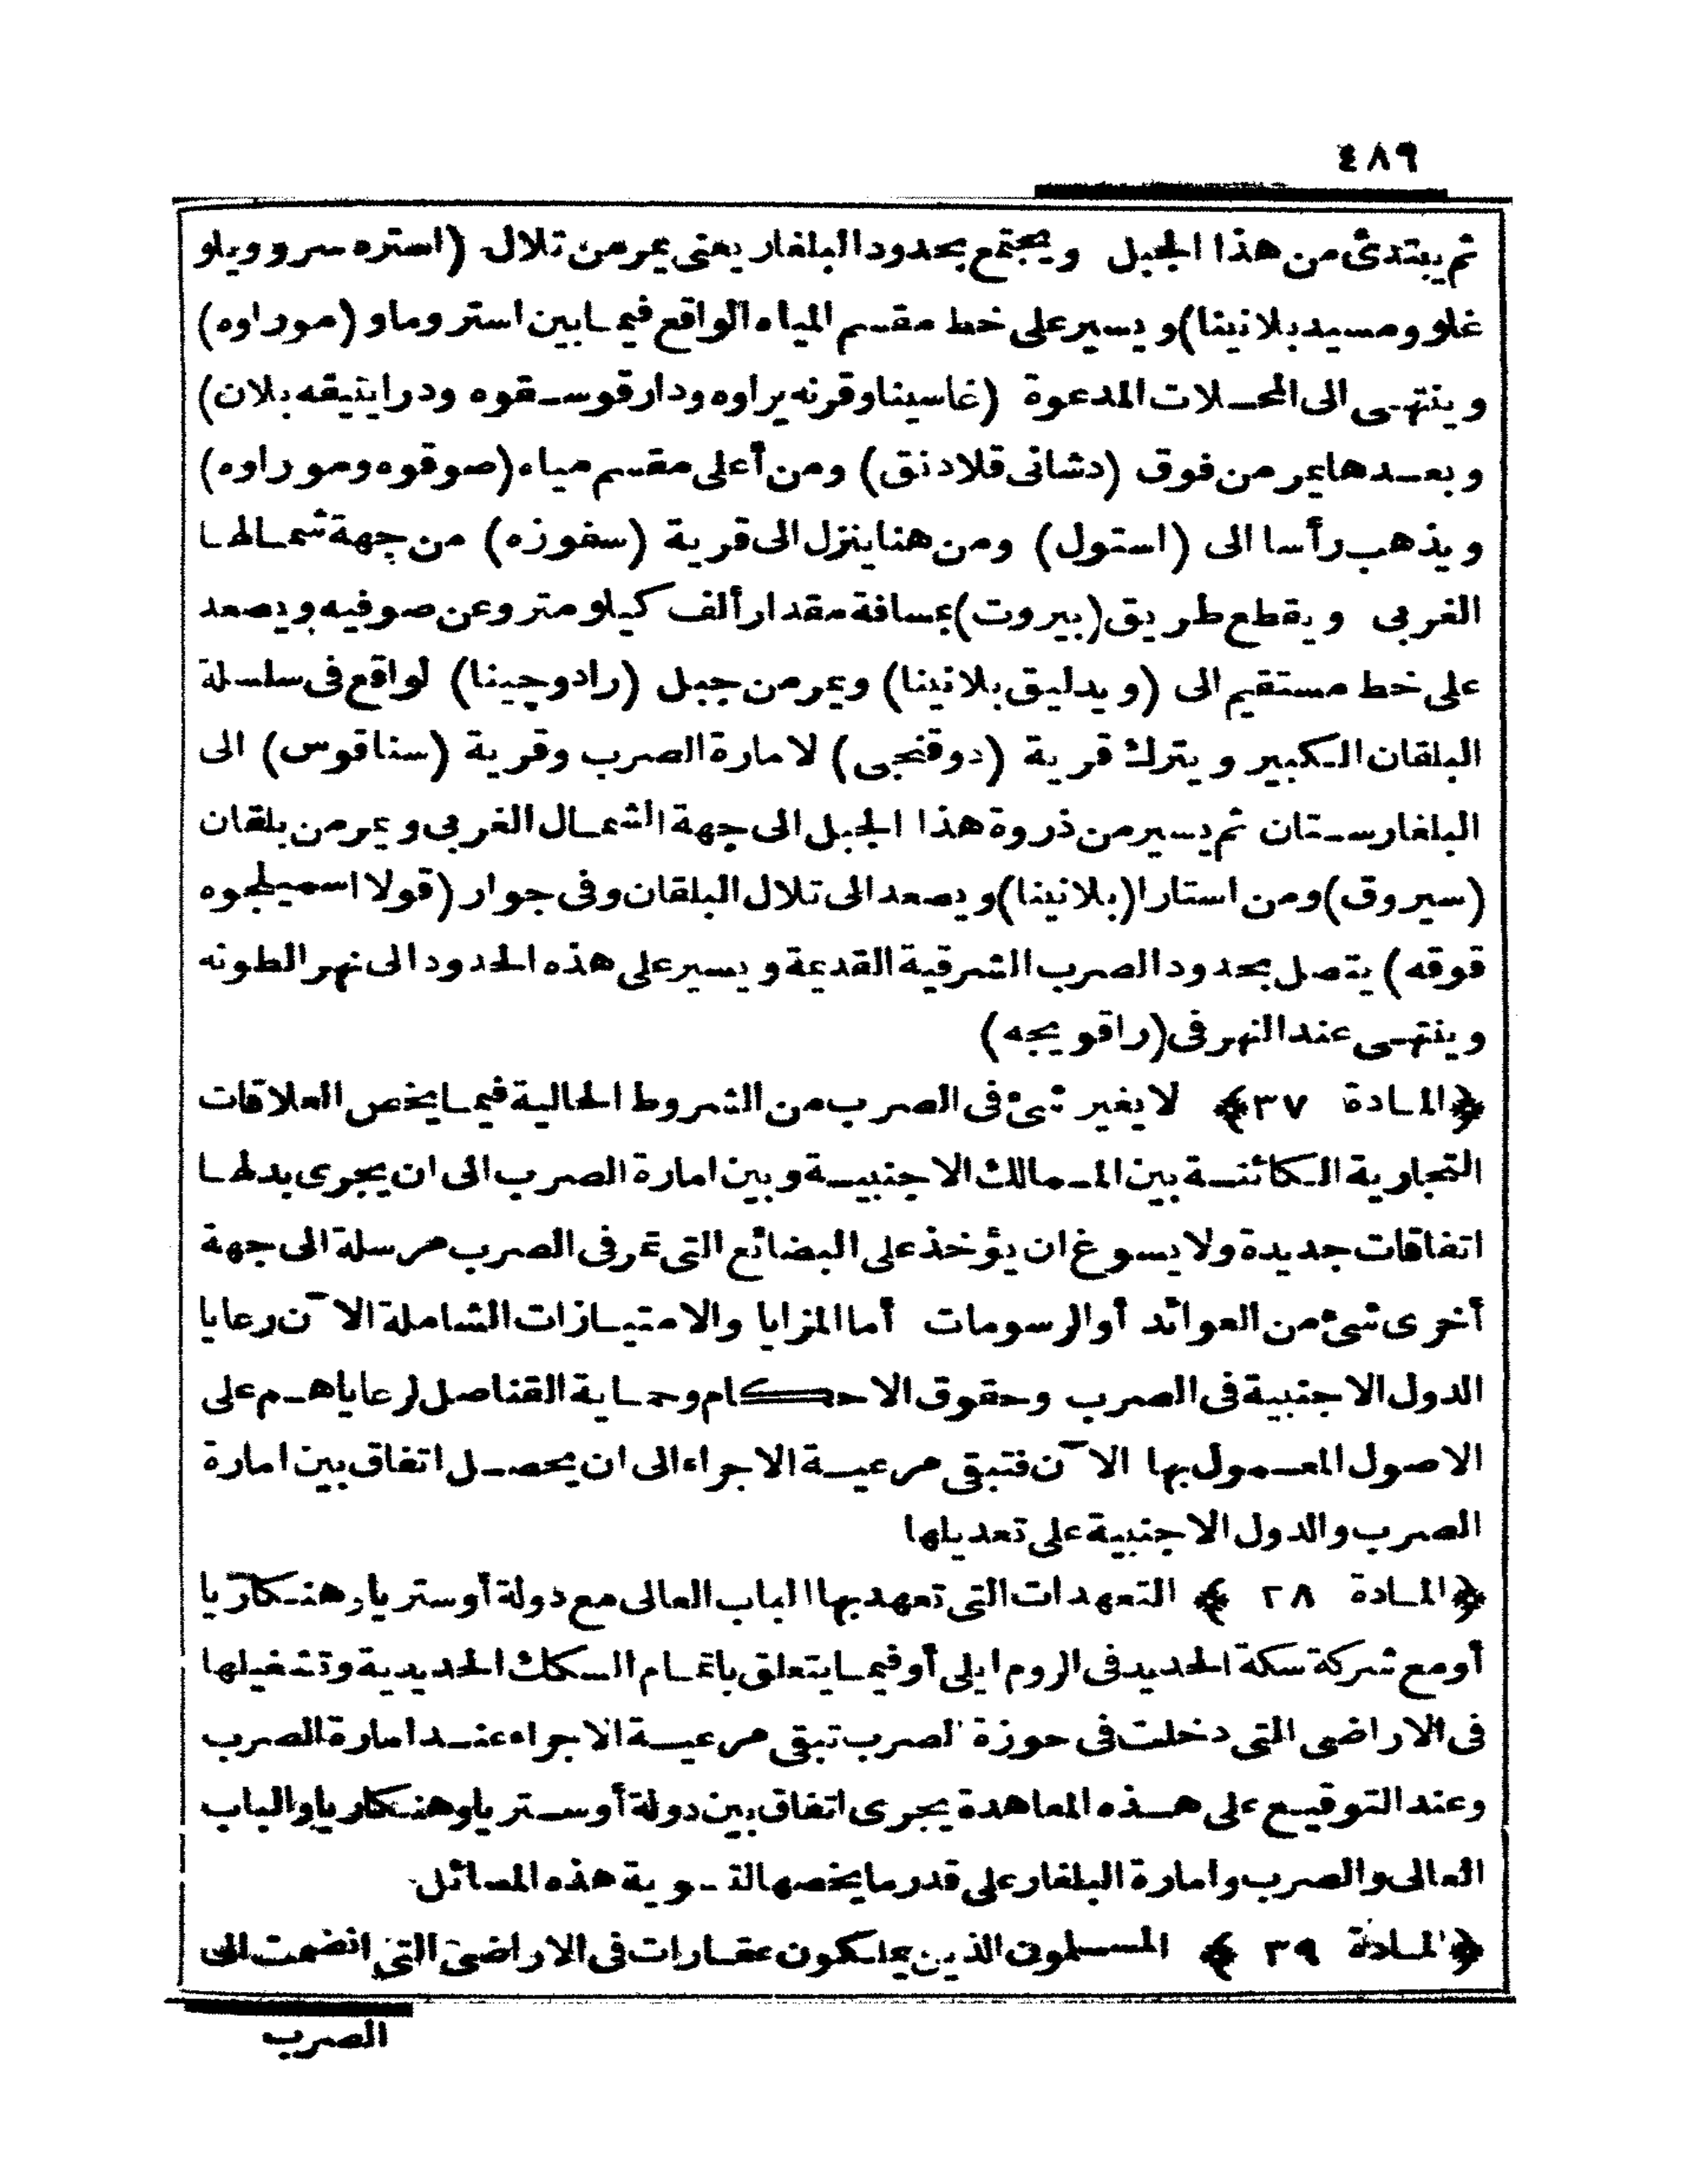 ٤٨٩
ثم يبتدئ من هذا الجبل ويجتمع بحدود البلغار يعنى يمر من تلال (استره سر وويلو
غلو ومسيد بلانينا) ويسير على خط مقسم المياه الواقع فيما بين استروما و (موراوه)
وينتهى الى المحلات المدعوة (غاسينا وقرنه يراوه ودارقوسقوه ودراينيقه بلان)
وبعدها يمر من فوق (دشانى قلادنق) ومن أعلى مقسم مياه (صوقوه وموراوه)
ويذهب رأسا الى (استول) ومن هنا ينزل الى قرية (سفوزه) من جهة شمالها
الغربى ويقطع طريق (بيروت) بمسافة مقدار ألف كيلو متر وعن صوفيه ويصعد
على خط مستقيم الى (ويدليق بلانينا) ويمر من جبل (رادوچينا) لواقع فى سلسلة
البلقان الكبير ويترك قرية (دوقنجى) لامارة الصرب وقرية (سناقوس) الى
البلغارستان ثم يسير من ذروة هذا الجبل الى جهة الشمال الغربى ويمر من بلقان
(سيروق) ومن استارا (بلانينا) ويصعد الى تلال البلقان وفى جوار (قولا اسميلجوه
قوقه) يتصل بحدود الصرب الشرقية القديمة ويسير على هذه الحدود الى نهر الطونه
وينتهى عند النهر فى (راقويجه)
﴿المادة ٣٧﴾ لا يغير شئ فى الصرب من الشروط الحالية فيما يخص العلاقات
التجارية الكائنة بين الممالك الاجنبية وبين امارة الصرب الى ان يجرى بدلها
اتفاقات جديدة ولا يسوغ ان يؤخذ على البضائع التى تمر فى الصرب مرسلة الى جهة
أخرى شئ من العوائد أو الرسومات أما المزايا والامتيازات الشاملة الآن رعايا
الدول الاجنبية فى الصرب وحقوق الاحكام وحماية القناصل لرعاياهم على
الاصول المعمول بها الآن فتبقى مرعية الاجراء الى ان يحصل اتفاق بين امارة
الصرب والدول الاجنبية على تعديلها
﴿المادة ٢٨﴾ التعهدات التى تعهد بها الباب العالى مع دولة أوستريا وهنكاريا
أو مع شركة سكة الحديد فى الروم ايلى أو فيما يتعلق باتمام السكك الحديدية وتشغيلها
فى الاراضى التى دخلت فى حوزة الصرب تبقى مرعية الاجراء عند امارة الصرب
وعند التوقيع على هذه المعاهدة يجرى اتفاق بين دولة أوستريا وهنكاريا والباب
العالى والصرب وامارة البلغار على قدر ما يخصها لتسوية هذه المسائل
﴿المادة ٣٩﴾ المسلمون الذين يملكون عقارات فى الاراضى التى انضمت الى
الصرب